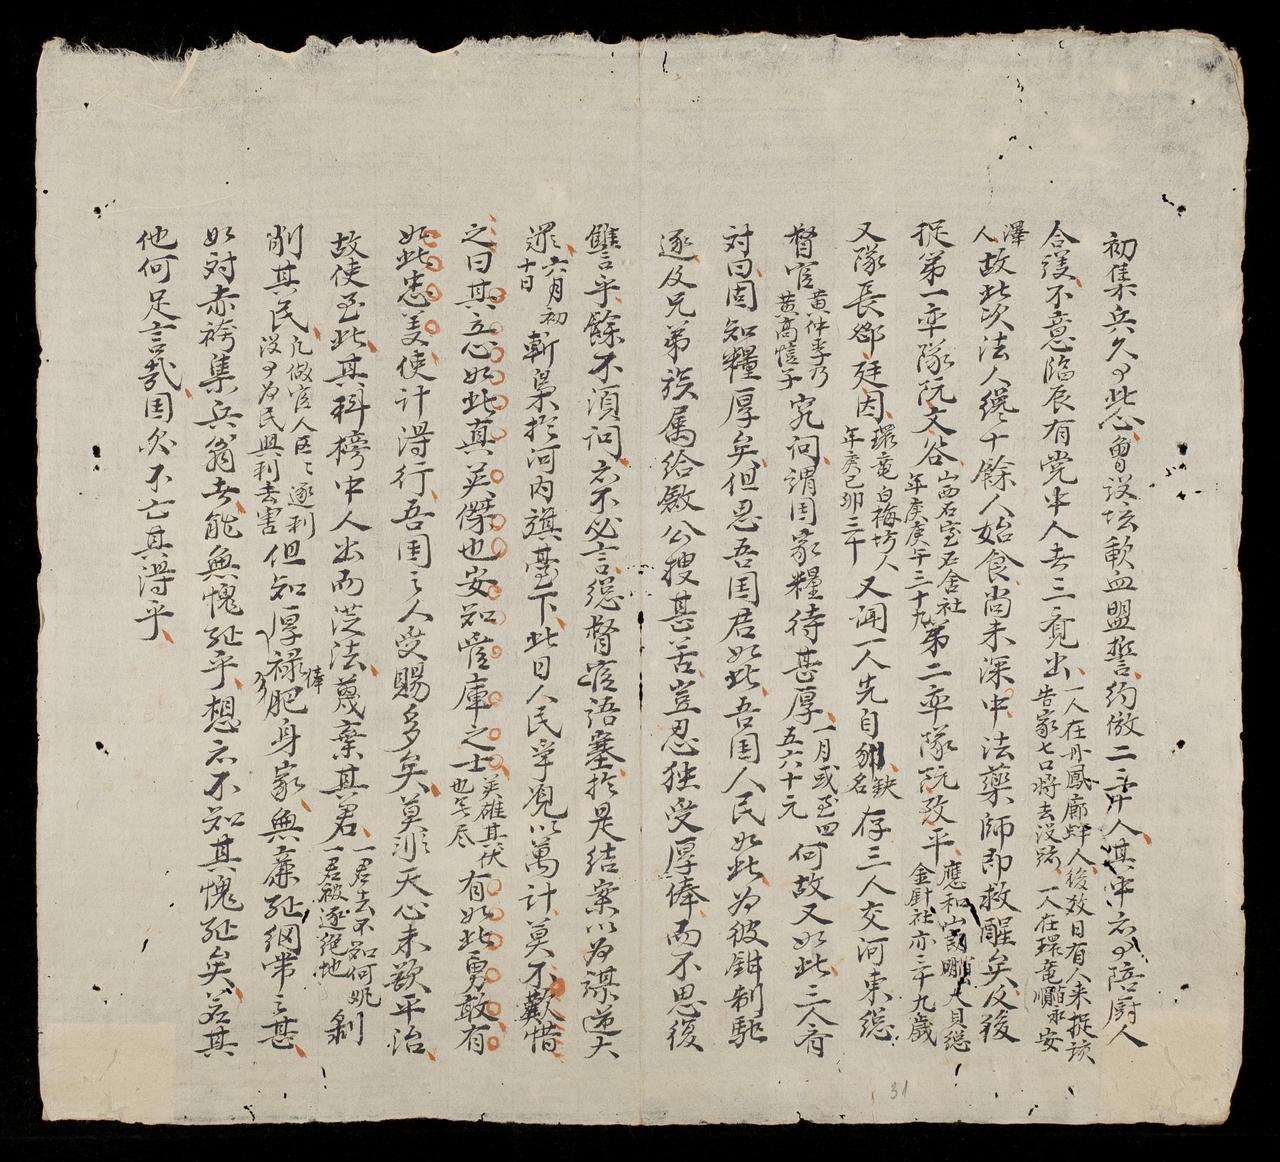 初集兵久有此心曾設坛歃血盟誓約倣二三十人其中亦有陪厨人
合缓不意臨辰有党中人去三竟出一人在丹鳳廊蚌人後效日有人来捉該告家七口將去没跡一人在環竜順安
澤人故此次法人纔十餘人始食尚未深中法藥師即救醒矣及後
捉第一率隊阮文谷山西石室石舍社年庚庚午三十九第二率隊阮政平應和山朗大貝總金針社亦三十九歲
又隊長鄧廷因環竜白梅坊人年庚己卯三十又調一人先自缺名存三人交河東總
督官黄仲季乃黄高愷子究问謂国家糧待甚厚一月或至四五六十元何故又如此三人有
対曰固知糧厚矣但忍吾国君如此吾国人民如此为彼鉗制駈
逐及兄弟族属給斂公搜甚苦豈忍独受厚俸而不思復
讐乎餘不須问亦不必言總督官語塞於是結案以为謀逆大
罪六月初十日斬梟於河内旗臺下此日人民学覌以萬計莫不歎惜
之曰其立心如此真英傑也安知管庫之士英雄其伏也無尽有如此勇敢有
如此忠美使计得行吾国之人受賜多矣莫測天心未欲平治
故使至此其科榜中人出而從法蔑棄其君一君去不知何兆一君被逐絕地剝
削其民凡做官人臣之逐利没有为民興利去害但知厚禄俸肥身家無廉耻綱常之甚
如対赤袴集兵翁去能無愧耻乎想亦不知其愧耻矣若其
他何足言哉国欲不亡其得乎
31